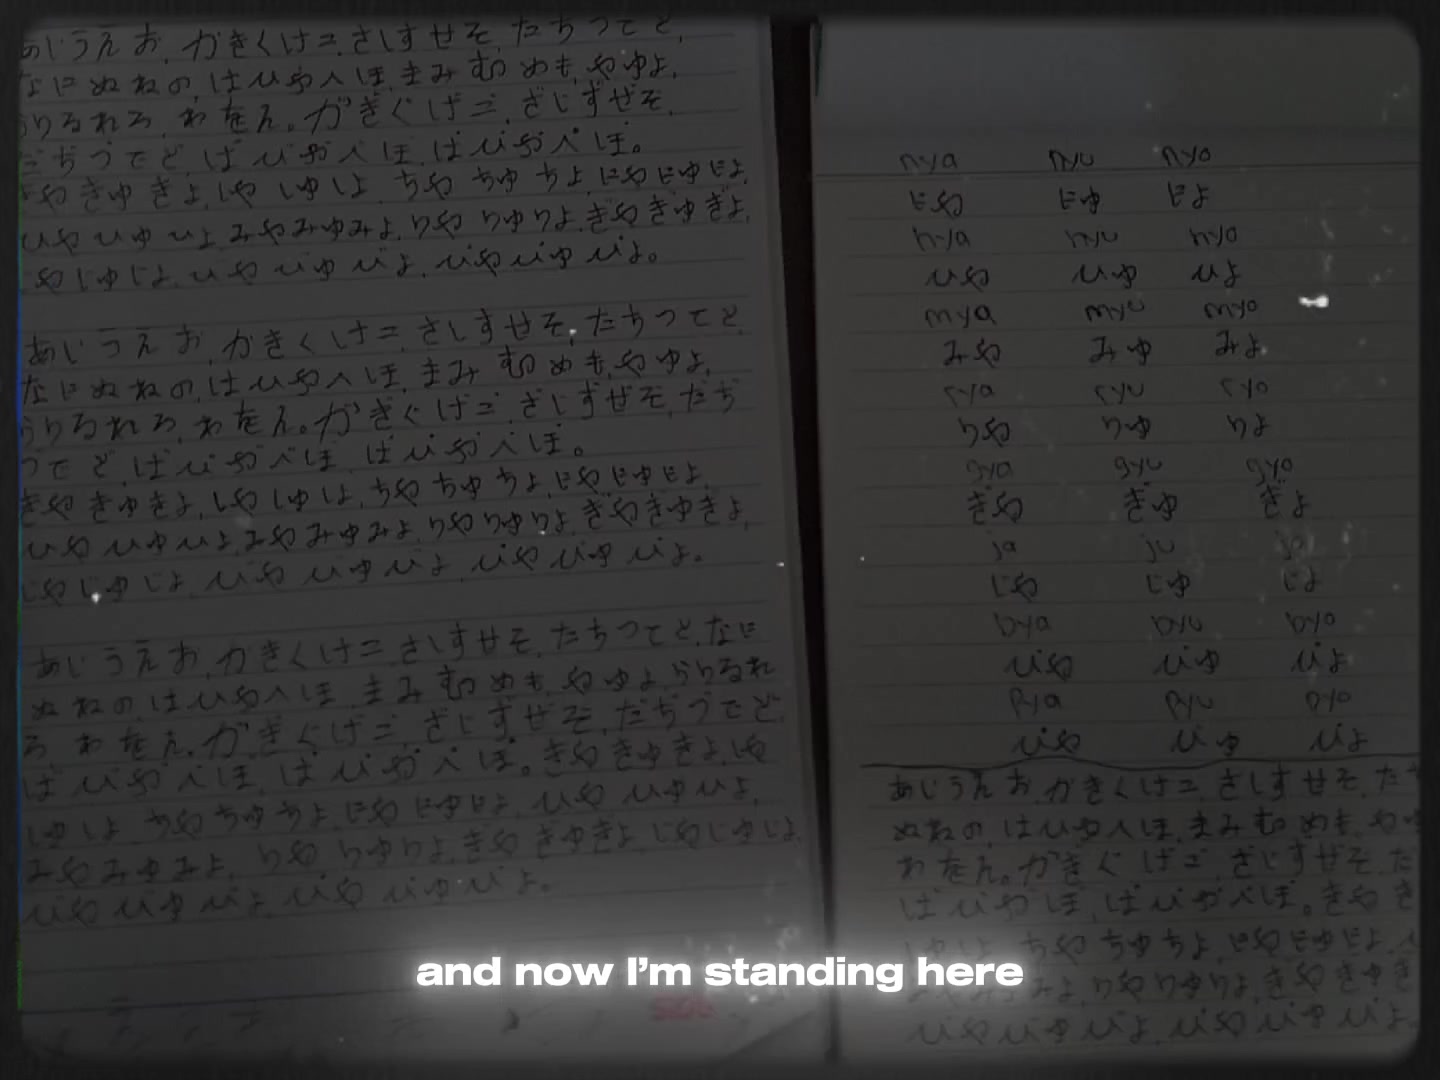 あいうえお、かきくけこ、さしすせそ、たちつてと、
なにぬねの、はひふへほ、まみむめも、やゆよ、
らりるれろ、わをん。がぎぐげご、ざじずぜぞ、
だぢづでど、ばびぶべぼ、ぱぴぷぺぽ。
きゃきゅきょ、しゃしゅしょ、ちゃちゅちょ、にゃにゅにょ、
ひゃひゅひょ、みゃみゅみょ、りゃりゅりょ、ぎゃぎゅぎょ、
じゃじゅじょ、びゃびゅびょ、ぴゃぴゅぴょ。
あいうえお、かきくけこ、さしすせそ、たちつてと、
なにぬねの、はひふへほ、まみむめも、やゆよ、
らりるれろ、わをん。がぎぐげご、ざじずぜぞ、だぢ
づでど、ばびぶべぼ、ぱぴぷぺぽ。
きゃきゅきょ、しゃしゅしょ、ちゃちゅちょ、にゃにゅにょ、
ひゃひゅひょ、みゃみゅみょ、りゃりゅりょ、ぎゃぎゅぎょ、
じゃじゅじょ、びゃびゅびょ、ぴゃぴゅぴょ。
あいうえお、かきくけこ、さしすせそ、たちつてと、なに
ぬねの、はひふへほ、まみむめも、やゆよ、らりるれ
ろ、わをん。がぎぐげご、ざじずぜぞ、だぢづでど、
ばびぶべぼ、ぱぴぷぺぽ。きゃきゅきょ、しゃ
しゅしょ、ちゃちゅちょ、にゃにゅにょ、ひゃひゅひょ、
みゃみゅみょ、りゃりゅりょ、ぎゃぎゅぎょ、じゃじゅじょ、
びゃびゅびょ、ぴゃぴゅぴょ。
nya nyu nyo
にゃ にゅ にょ
hya hyu hyo
ひゃ ひゅ ひょ
mya myu myo
みゃ みゅ みょ
rya ryu ryo
りゃ りゅ りょ
gya gyu gyo
ぎゃ ぎゅ ぎょ
ja ju jo
じゃ じゅ じょ
bya byu byo
びゃ びゅ びょ
pya pyu pyo
ぴゃ ぴゅ ぴょ
あいうえお、かきくけこ、さしすせそ、た
ぬねの、はひふへほ、まみむめも、やゆ
わをん。がぎぐげご、ざじずぜぞ、だ
ばびぶぼ、ぱぴぷぺぽ。きゃき
しゅしょ、ちゃちゅちょ、にゃにゅにょ、
みょ、りゃりゅりょ、ぎゃぎゅぎ
びゃびゅびょ、ぴゃぴゅぴょ。
and now I'm standing here